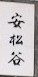 安松谷